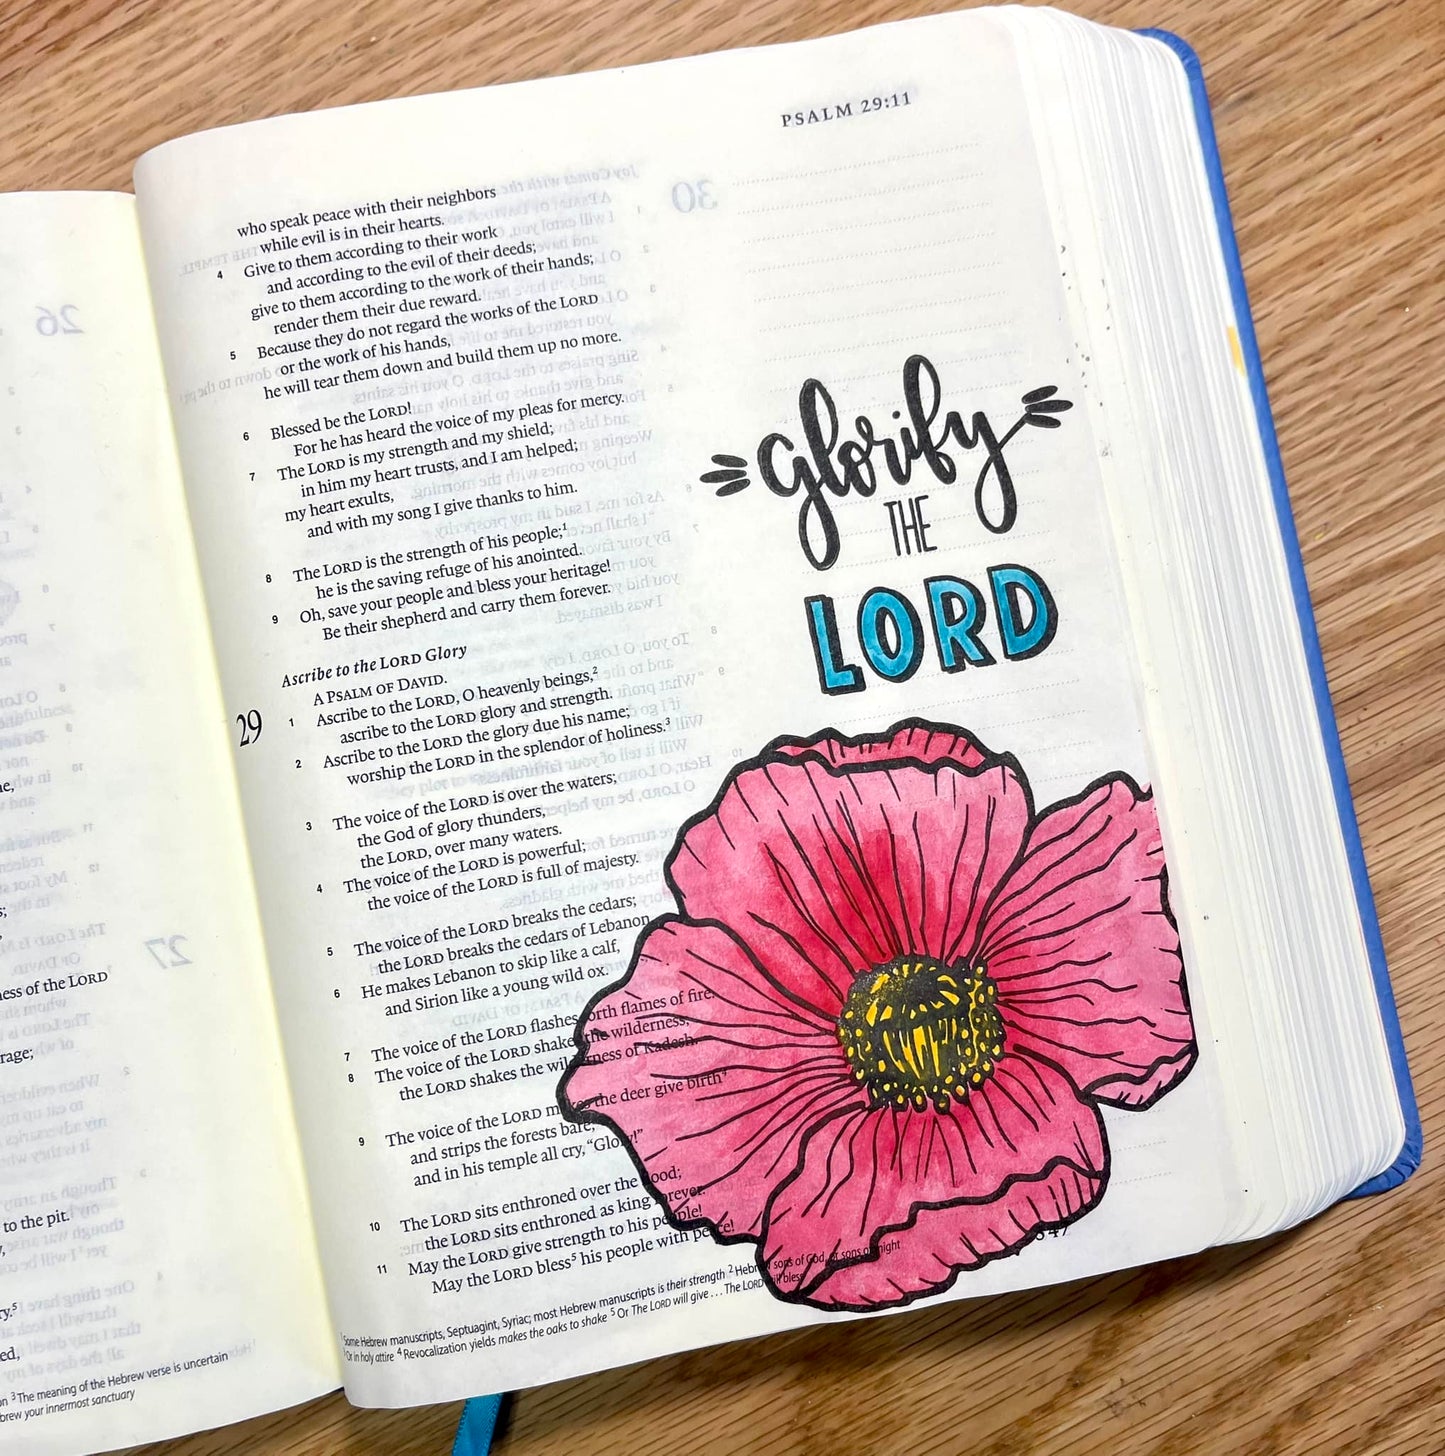 26
27
ne,
s;
ess of the LORD
rage;
to the pit.
y,
ry.5
ed,
on 3 The meaning of the Hebrew verse is uncertain
brew your innermost sanctuary
PSALM 29:11
who speak peace with their neighbors
while evil is in their hearts.
4 Give to them according to their work
and according to the evil of their deeds;
give to them according to the work of their hands;
render them their due reward.
5 Because they do not regard the works of the LORD
or the work of his hands,
he will tear them down and build them up no more.
6 Blessed be the LORD!
For he has heard the voice of my pleas for mercy.
7 The LORD is my strength and my shield;
in him my heart trusts, and I am helped;
my heart exults,
and with my song I give thanks to him.
8 The LORD is the strength of his people;1
he is the saving refuge of his anointed.
9 Oh, save your people and bless your heritage!
Be their shepherd and carry them forever.
Ascribe to the LORD Glory
A PSALM OF DAVID.
29 1 Ascribe to the LORD, O heavenly beings,2
ascribe to the LORD glory and strength.
2 Ascribe to the LORD the glory due his name;
worship the LORD in the splendor of holiness.3
3 The voice of the LORD is over the waters;
the God of glory thunders,
the LORD, over many waters.
4 The voice of the LORD is powerful;
the voice of the LORD is full of majesty.
5 The voice of the LORD breaks the cedars;
the LORD breaks the cedars of Lebanon.
6 He makes Lebanon to skip like a calf,
and Sirion like a young wild ox.
7 The voice of the LORD flashes forth flames of fire.
8 The voice of the LORD shakes the wilderness;
the LORD shakes the wilderness of Kadesh.
9 The voice of the LORD makes the deer give birth4
and strips the forests bare,
and in his temple all cry, “Glory!”
10 The LORD sits enthroned over the flood;
the LORD sits enthroned as king forever.
11 May the LORD give strength to his people!
May the LORD bless5 his people with peace!
1 Some Hebrew manuscripts, Septuagint, Syriac; most Hebrew manuscripts is their strength 2 Hebrew sons of God, or sons of might
3 Or in holy attire 4 Revocalization yields makes the oaks to shake 5 Or The LORD will give . . . The LORD will bless
30
Glorify
THE
LORD